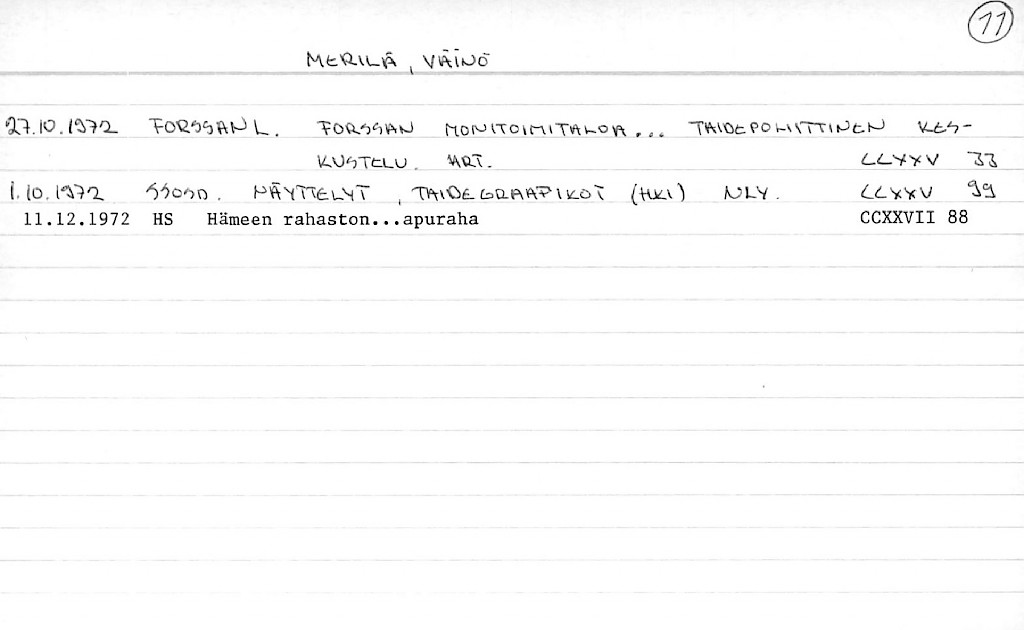 11
MERILÄ, VÄINÖ
27.10.1972 FORSSAN L. FORSSAN MONITOIMITALOA... TAIDEPOLIITTINEN KES-
KUSTELU. ART. CCXXV 33
1.10.1972 SSOSD. NÄYTTELYT, TAIDEGRAAFIKOT (HKI) NLY. CCXXV 99
11.12.1972 HS Hämeen rahaston...apuraha CCXXVII 88